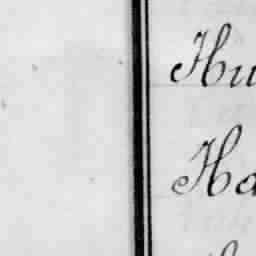 Hu
Ha